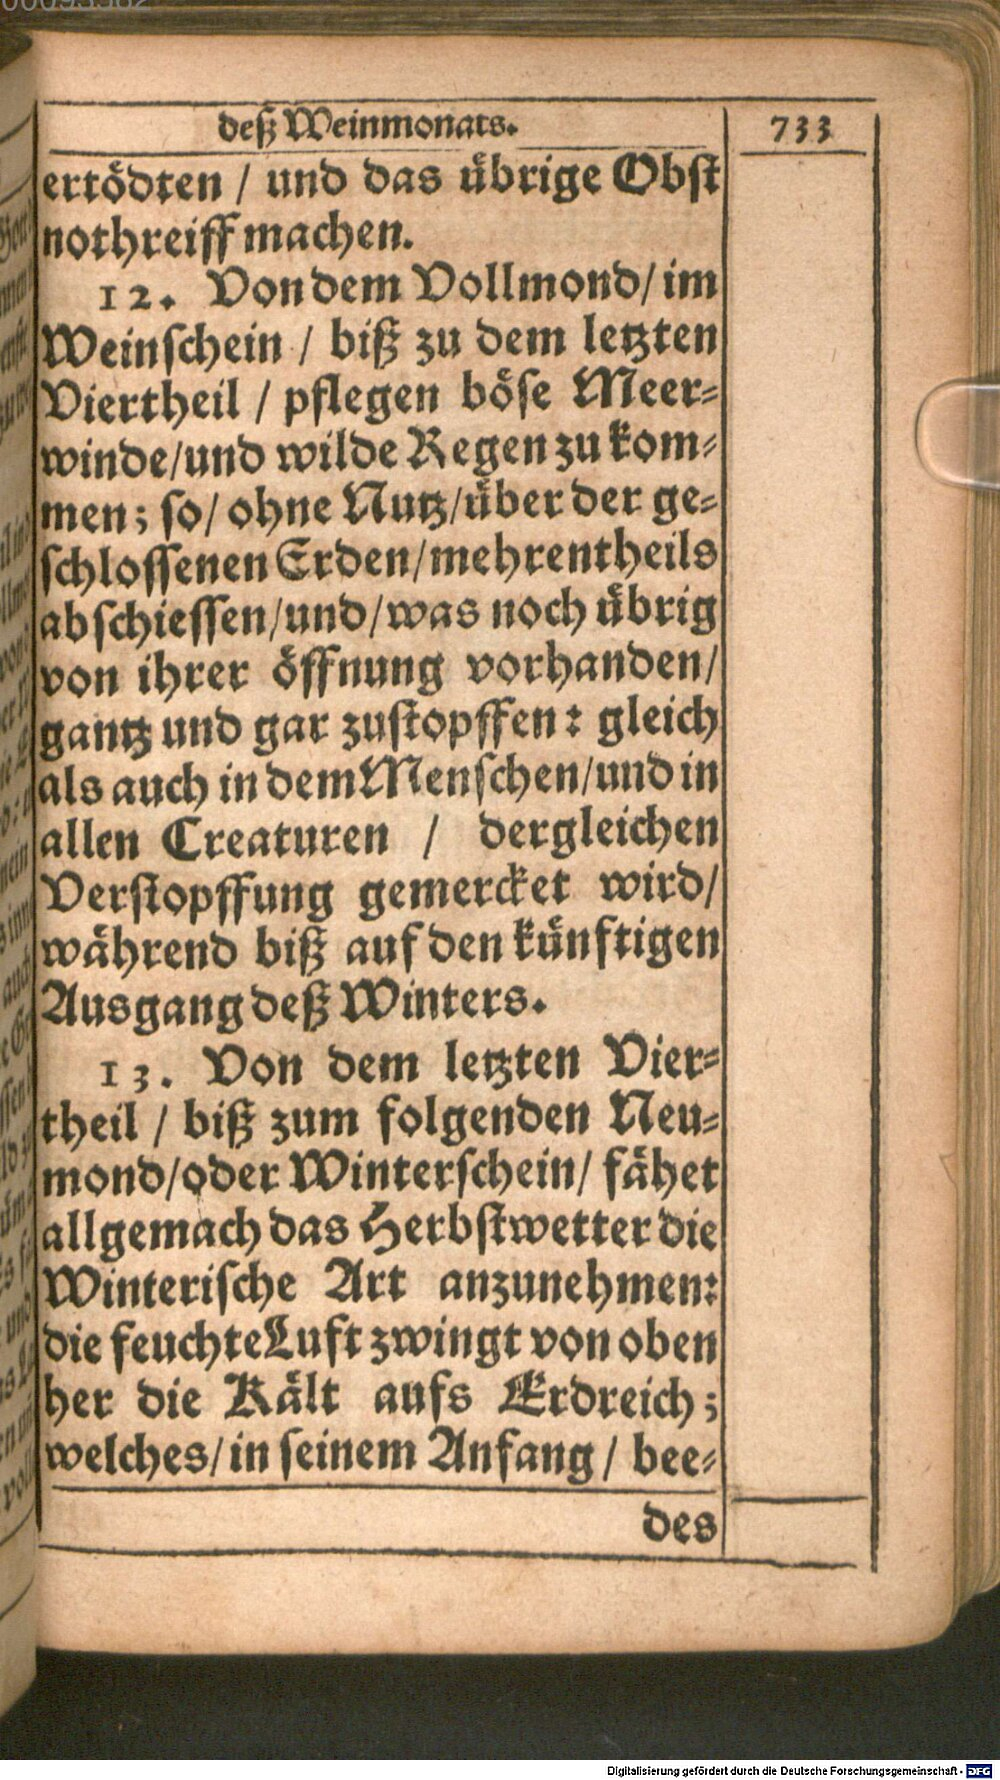 deß Weinmonats.
733
ertödten / und das übrige Obst
nothreiff machen.
12. Von dem Vollmond/ im
Weinschein / biß zu dem letzten
Viertheil / pflegen böse Meer-
winde/und wilde Regen zu kom-
men; so/ ohne Nutz/über der ge-
schlossenen Erden/mehrentheils
abschiessen/und/was noch übrig
von ihrer öffnung vorhanden/
gantz und gar zustopffen: gleich
als auch in dem Menschen/und in
allen Creaturen / dergleichen
Verstopffung gemercket wird/
während biß auf den künftigen
Ausgang deß Winters.
13. Von dem letzten Vier-
theil / biß zum folgenden Neu-
mond/oder Winterschein/ fähet
allgemach das Herbstwetter die
Winterische Art anzunehmen:
die feuchte Luft zwingt von oben
her die Kält aufs Erdreich;
welches/in seinem Anfang / bee-
des
Digitalisierung gefördert durch die Deutsche Forschungsgemeinschaft - DFG